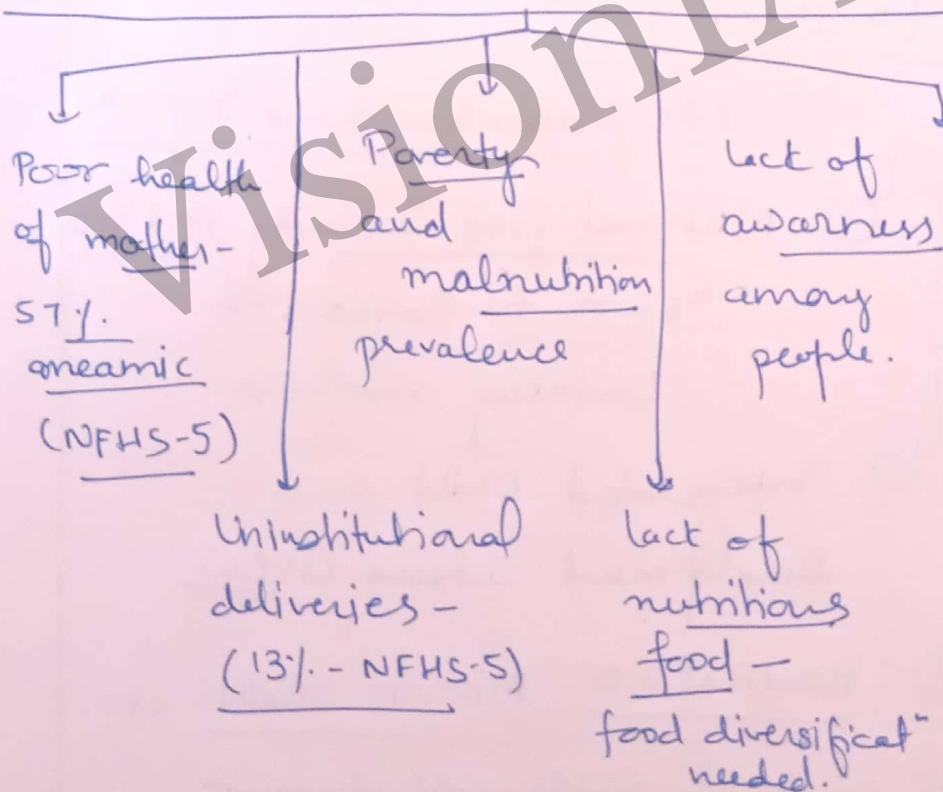 Poor health
of mother-
57%.
aneamic
(NFHS-5)
Poverty
and
malnutrition
prevalence
lack of
awarness
among
people.
Uninstitutional
deliveries -
(13%. - NFHS-5)
lack of
nutritious
food -
food diversificatn
needed.
VisionIA